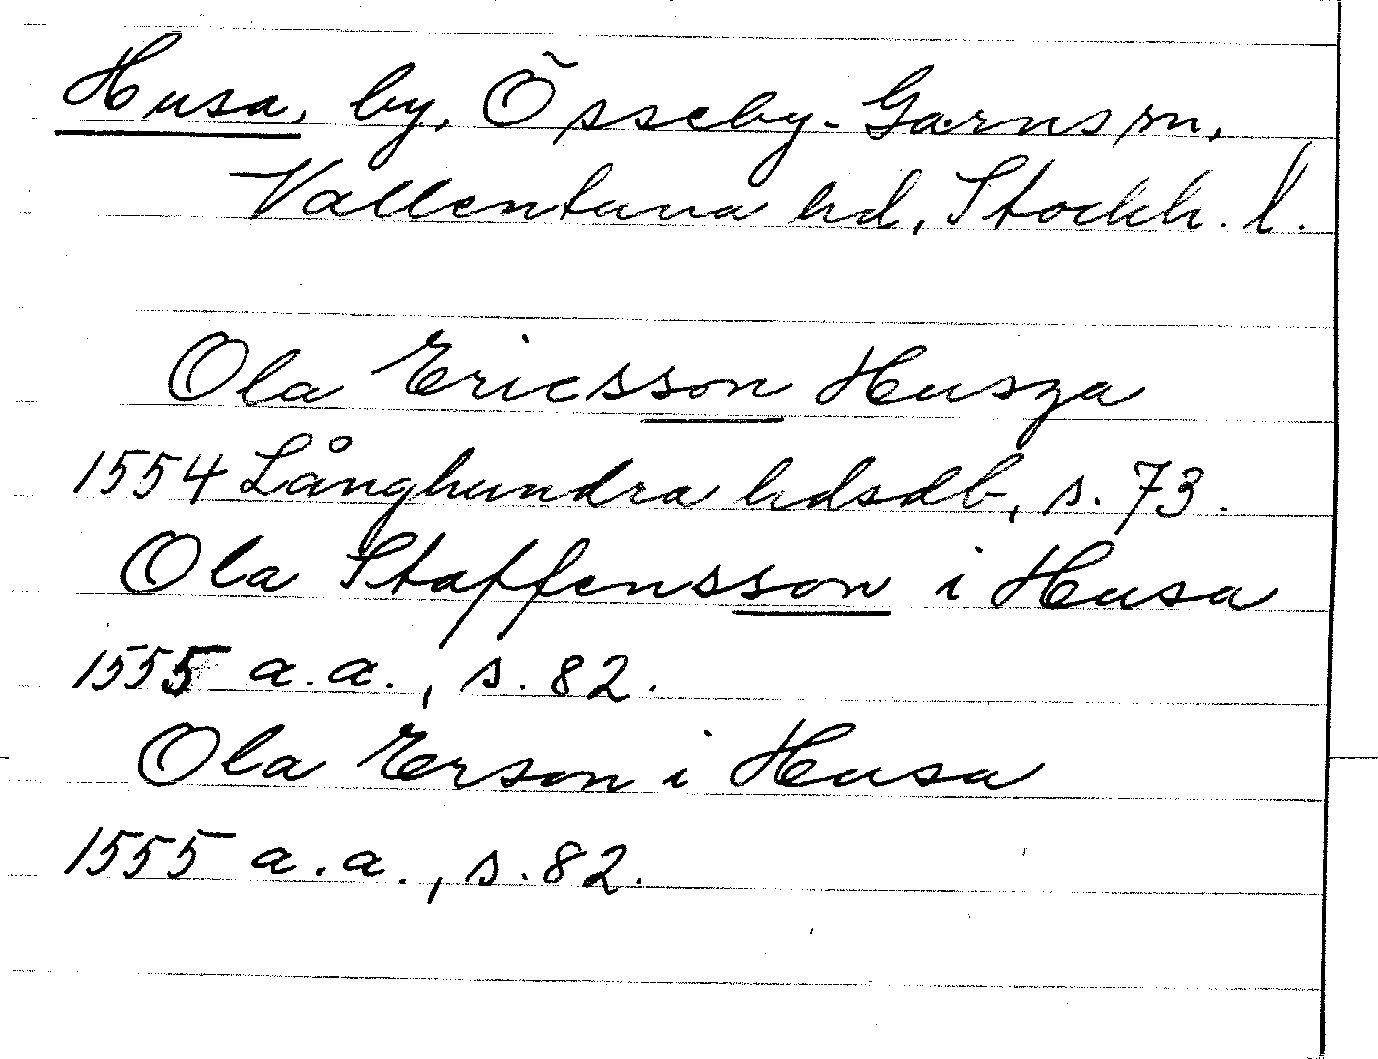 Husa, by, Össeby-Garns sn,
Vallentuna hd, Stockh. l.
Ola Ericsson Husza
1554 Långhundra hdsdb, s. 73.
Ola Staffensson i Husa
1555 a.a., s. 82.
Ola Erson i Husa
1555 a.a., s. 82.